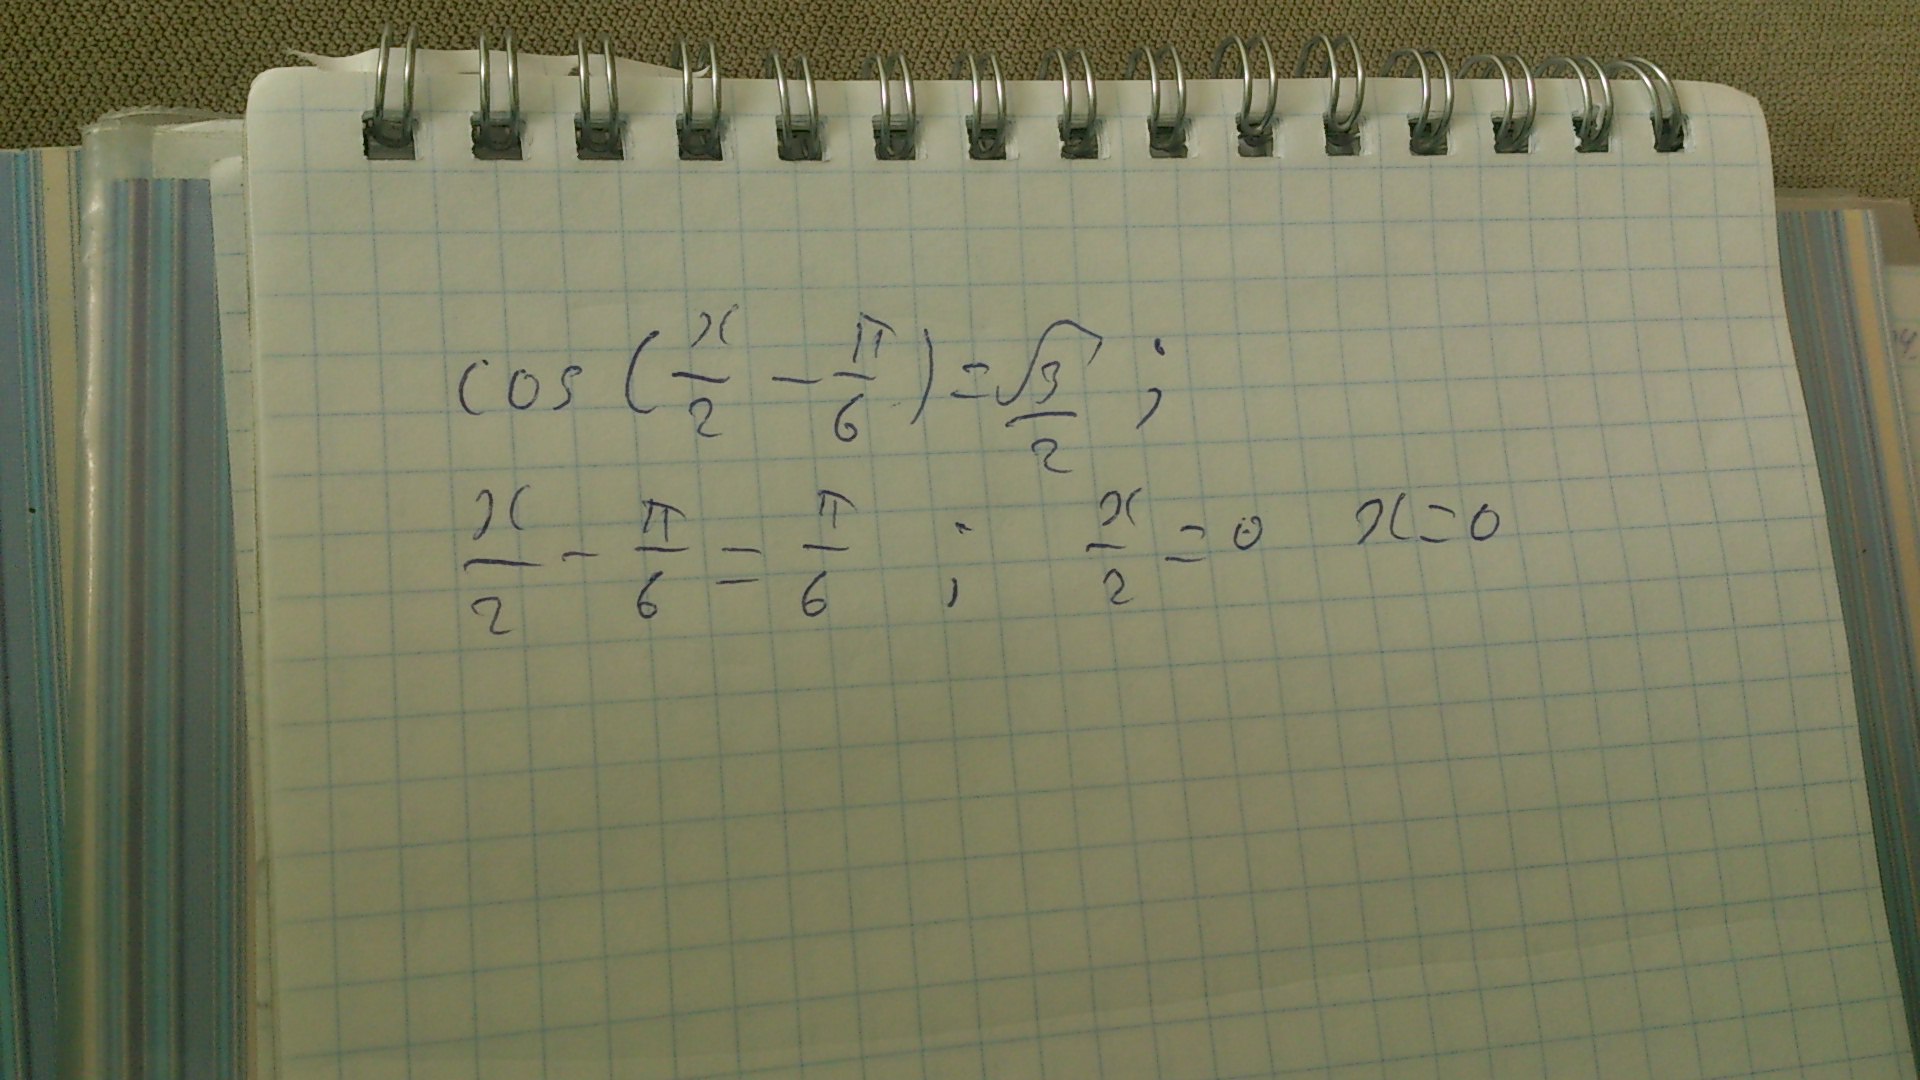 cos (x/2 − π/6) = √3/2 ;
x/2 − π/6 = π/6 ; x/2 = 0 x = 0